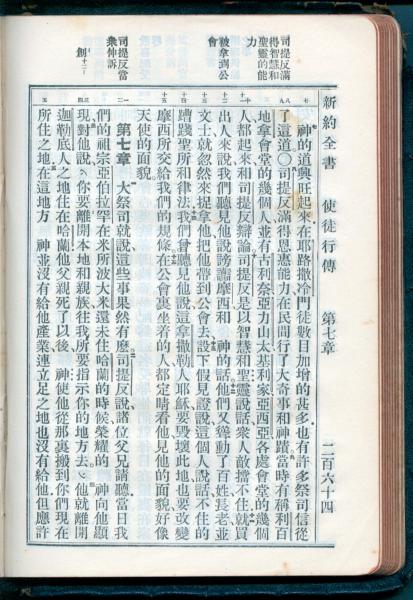 新約全書 使徒行傳 第七章 二百六十四
司提反滿
得智慧和
聖靈的能
力
被拿到公
會
司提反當
衆伸訴
神的道興旺起來在耶路撒冷門徒數目加增的甚多也有許多祭司信從
了這道○司提反滿得恩惠能力在民間行了大奇事和神蹟當時有稱利百
地拿會堂的幾個人並有古利奈亞力山太基利家亞西亞各處會堂的幾個
人都起來和司提反辯論司提反是以智慧和聖靈說話衆人敵擋不住就買
出人來說我們聽見他說謗讟摩西和 神的話他們又聳動了百姓長老並
文士就忽然來捉拿他把他帶到公會去設下假見證說這個人說話不住的
蹧踐聖所和律法我們曾聽見他說這拿撒勒人耶穌要毀壞此地也要改變
摩西所交給我們的規條在公會裏坐着的人都定睛看他見他的面貌好像
天使的面貌
第七章 大祭司就說這些事果然有麽司提反說諸位父兄請聽當日我
們的祖宗亞伯拉罕在米所波大米還未住在哈蘭的時候榮耀的 神向他顯
現對他說你要離開本地和親族往我所要指示你的地方去他就離開
迦勒底人之地住在哈蘭他父親死了以後 神使他從那裏搬到你們現在
所住之地在這地方 神並沒有給他產業連立足之地也沒有給他但應許